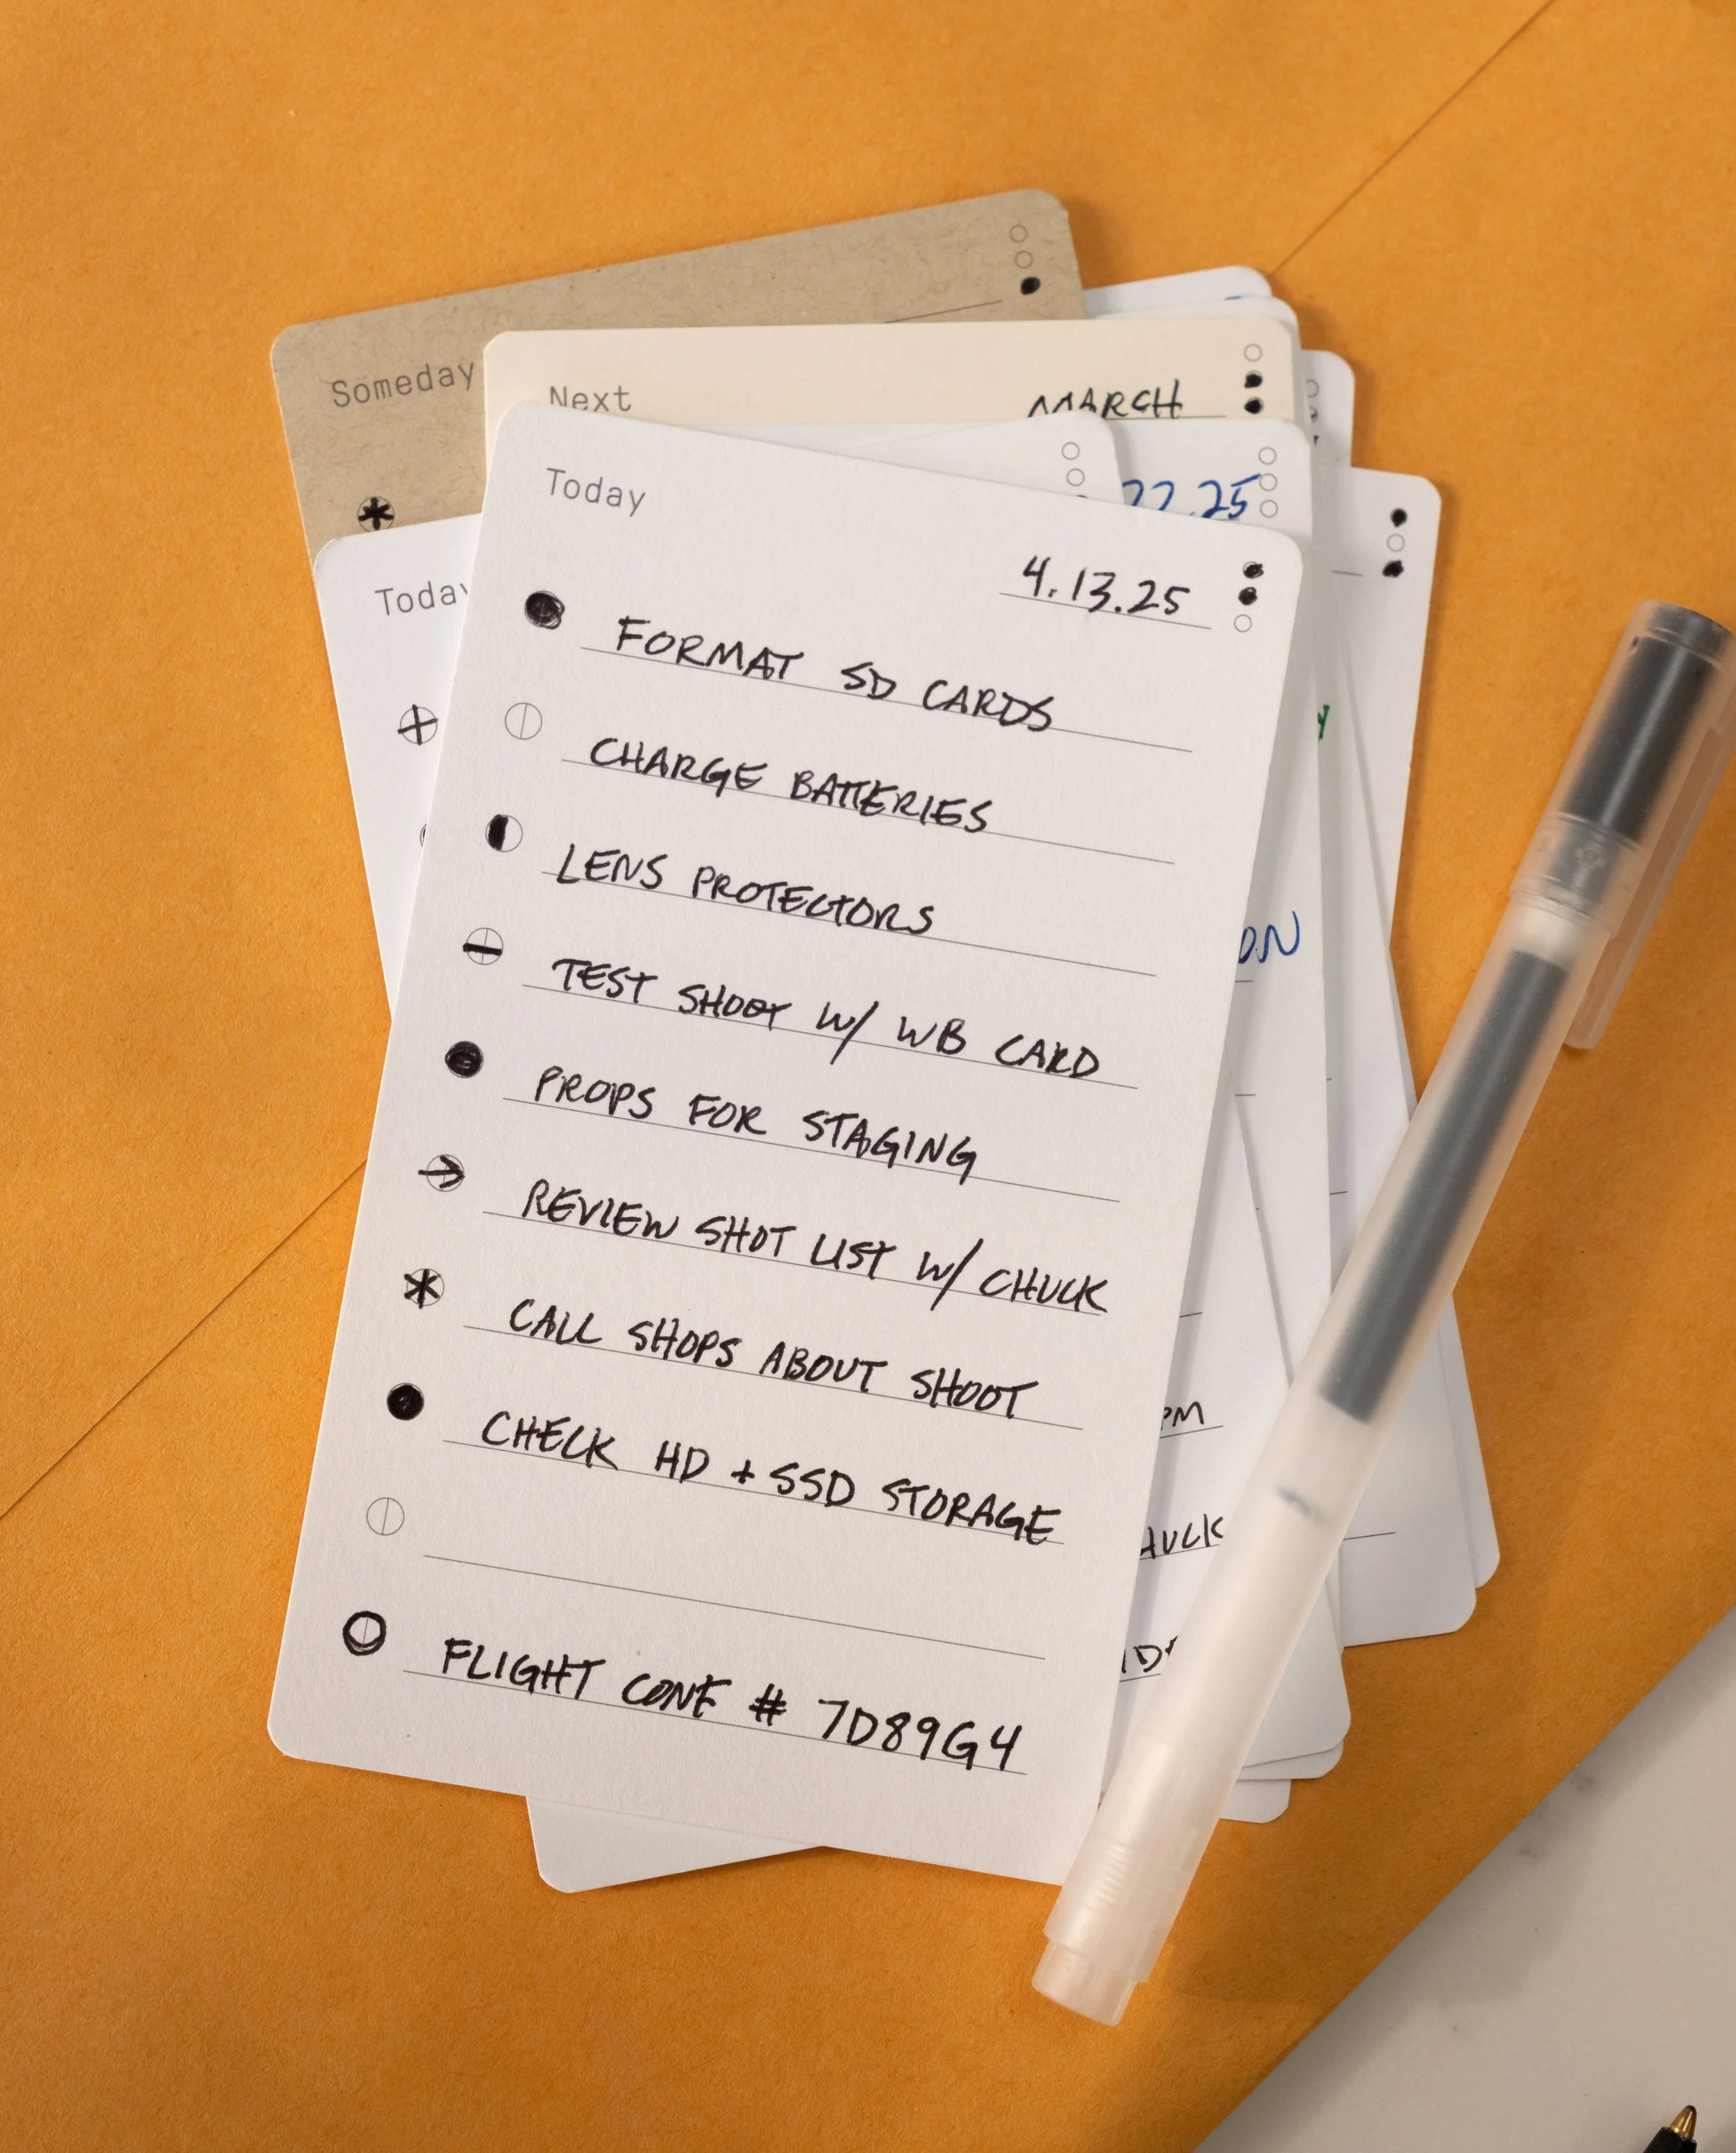 Someday
Next MARCH
22.25
Today
Today
4.13.25
FORMAT SD CARDS
CHARGE BATTERIES
LENS PROTECTORS
TEST SHOOT W/ WB CARD
PROPS FOR STAGING
REVIEW SHOT LIST W/ CHUCK
CALL SHOPS ABOUT SHOOT
CHECK HD + SSD STORAGE
FLIGHT CONF # 7D89G4
PM